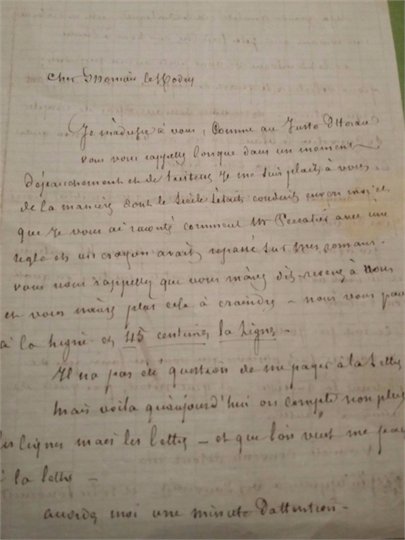 cher
Je m'adresse à vous, comme au Juste
vous vous rappelez lorsque dans un moment
d'épanchement et de tristesse je me suis plaint à vous
de la manière dont le Siècle s'était conduit envers moi et
que je vous ai raconté comment Mr avec une
règle et un crayon avait repassé sur mes romans -
vous vous rappelez que vous m'avez dit - revenez à nous
et vous n'aurez plus cela à craindre - nous vous pay
à la ligne et 45 centimes la ligne -
Il n'a pas été question de me payer à la lettre
mais voilà qu'aujourd'hui on compte non plus
les lignes mais les lettres - et que l'on veut me pay
à la lettre -
accordez moi une minute d'attention -